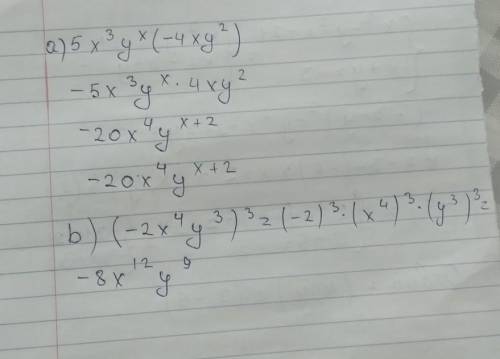 a) 5x³yˣ(-4xy²)
-5x³yˣ · 4xy²
-20x⁴yˣ⁺²
-20x⁴yˣ⁺²
b) (-2x⁴y³)³ = (-2)³ · (x⁴)³ · (y³)³ =
-8x¹²y⁹